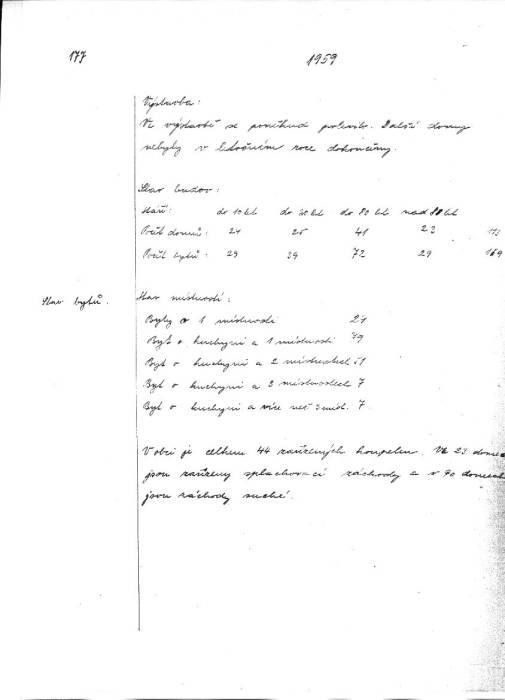 177
1959
Výstavba:
Ve výstavbě se poněkud polevilo. Další domy
nebyly v letošním roce dokončeny.
Stav budov:
Stáří: do 10 let do 40 let do 80 let nad 80 let
Počet domů: 24 25 41 23 113
Počet bytů: 29 39 72 29 169
Stav bytů.
Stav místností:
Byty o 1 místnosti 21
Byt o kuchyni a 1 místnosti 79
Byt o kuchyni a 2 místnostech 51
Byt o kuchyni a 3 místnostech 7
Byt o kuchyni a více než 3 míst. 7.
V obci je celkem 44 zařízených koupelen. Ve 23 domech
jsou zařízeny splachovací záchody a v 90 domech
jsou záchody suché.